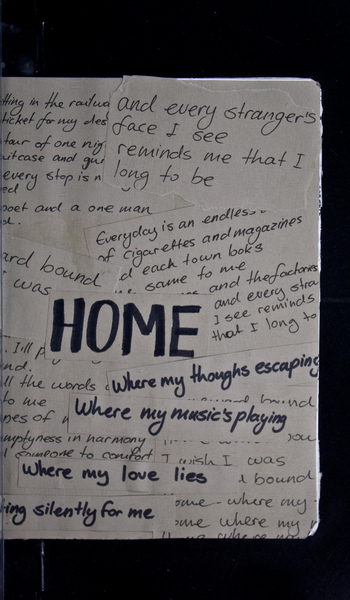 and every stranger's
face I see
reminds me that I
long to be
tting in the railwa
ticket for my des
tour of one nig
uitcase and gui
every stop is n
ed
poet and a one man
Everyday is an endless
of cigarettes and magazines
d each town boks
same to me
and the factories
and every stra
I see reminds
that I long to
ard bound
was
HOME
I'll p
nd.
ll the words
to me
nes of
mptyness in harmony
someone to comfort
Where my thoughs escaping
bound
Where my music's playing
you
I wish I was
Where my love lies
bound
ome - where my
ing silently for me
ome where my